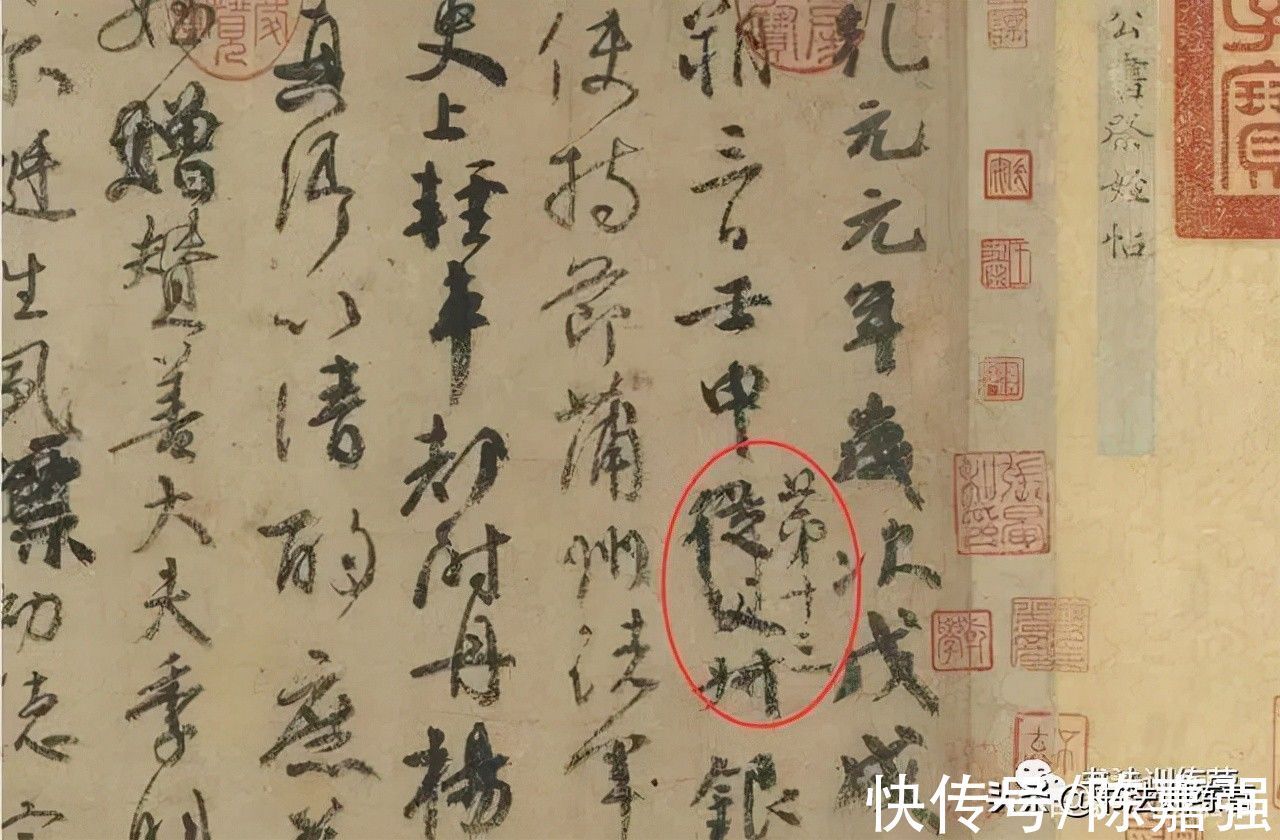 公書祭姪帖
乾元元年歲次戊戌
朔三日壬申第十三從父叔銀
使持節蒲州諸軍
史上輕車都尉丹楊
真卿以清酌庶
姪贈贊善大夫季明
尒挺生夙標幼德
快传号/陈嘉强